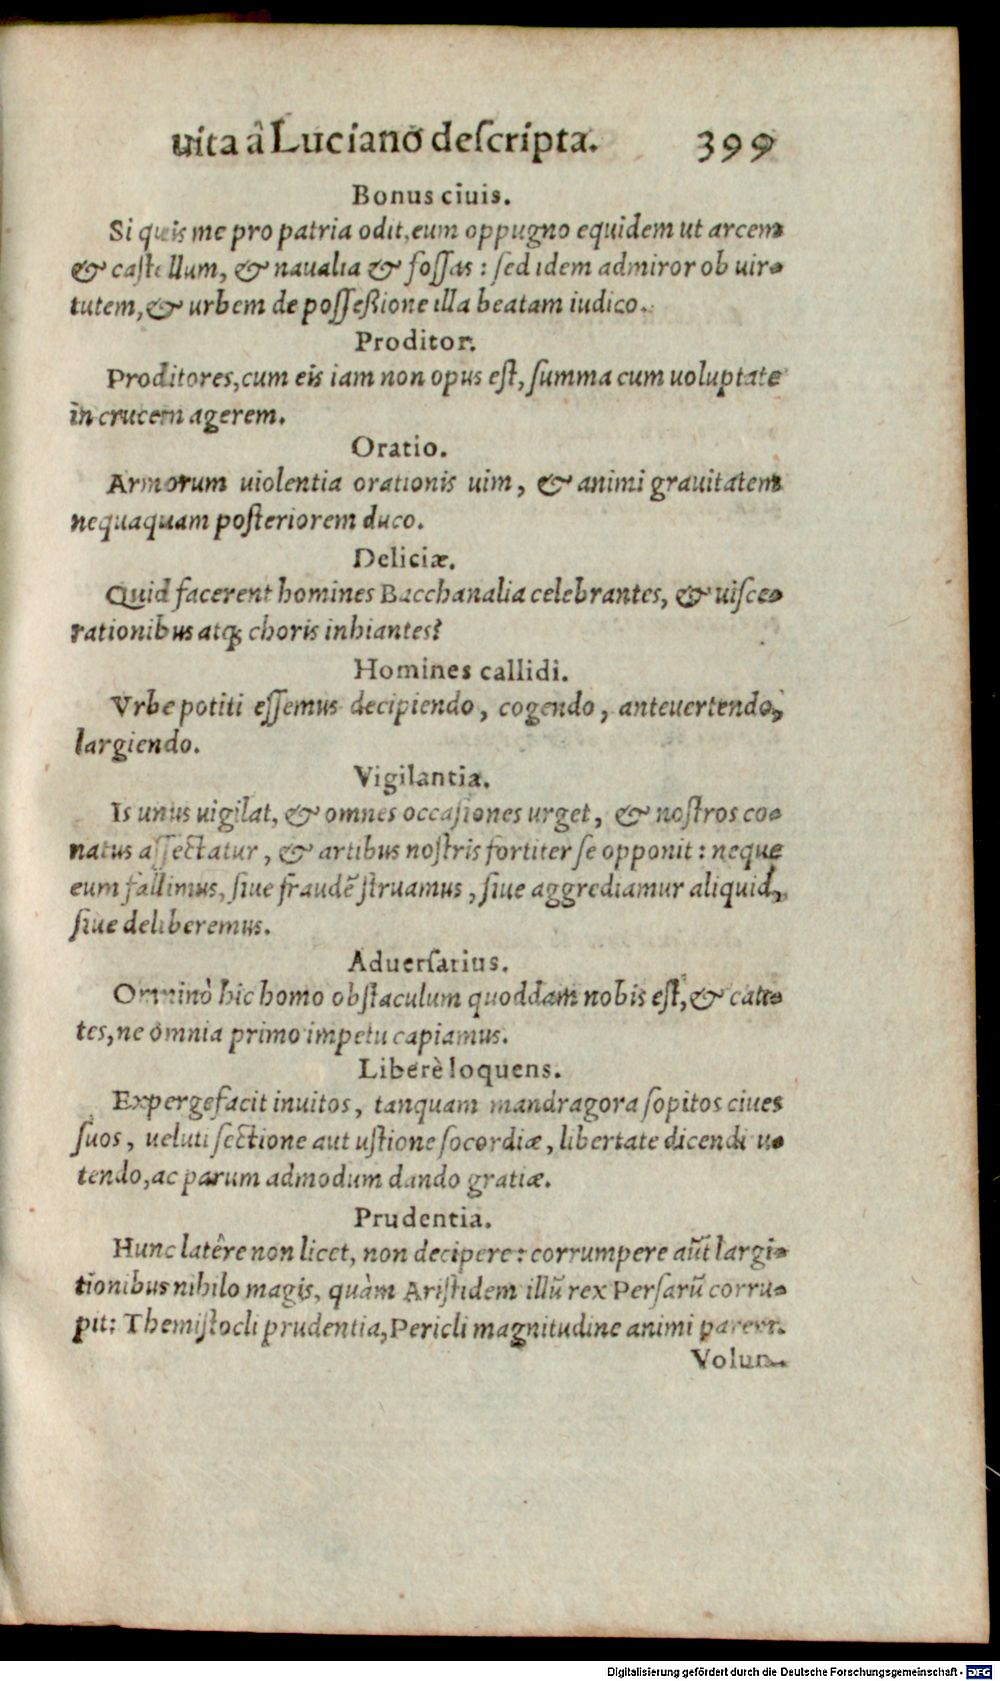 uita â Luciano descripta. 399
Bonus ciuis.
Si quis me pro patria odit, eum oppugno equidem ut arcem
& castellum, & naualia & fossas : sed idem admiror ob uir-
tutem, & urbem de posseßione illa beatam iudico.
Proditor.
Proditores, cum eis iam non opus est, summa cum uoluptate
in crucem agerem.
Oratio.
Armorum uiolentia orationis uim, & animi grauitatem
nequaquam posteriorem duco.
Deliciæ.
Quid facerent homines Bacchanalia celebrantes, & uisce-
rationibus atq; choris inhiantes?
Homines callidi.
Vrbe potiti essemus decipiendo, cogendo, anteuertendo,
largiendo.
Vigilantia.
Is unus uigilat, & omnes occasiones urget, & nostros co-
natus assectatur, & artibus nostris fortiter se opponit : neque
eum fallimus, siue fraudē struamus, siue aggrediamur aliquid,
siue deliberemus.
Aduersarius.
Omninò hic homo obstaculum quoddam nobis est, & caute-
tes, ne omnia primo impetu capiamus.
Liberè loquens.
Expergefacit inuitos, tanquam mandragora sopitos ciues
suos, ueluti sectione aut ustione socordiæ, libertate dicendi u-
tendo, ac parum admodum dando gratiæ.
Prudentia.
Hunc latêre non licet, non decipere : corrumpere aūt largi-
tionibus nihilo magis, quàm Aristidem illū rex Persarū corru-
pit: Themistocli prudentia, Pericli magnitudine animi
Volun-
Digitalisierung gefördert durch die Deutsche Forschungsgemeinschaft - DFG